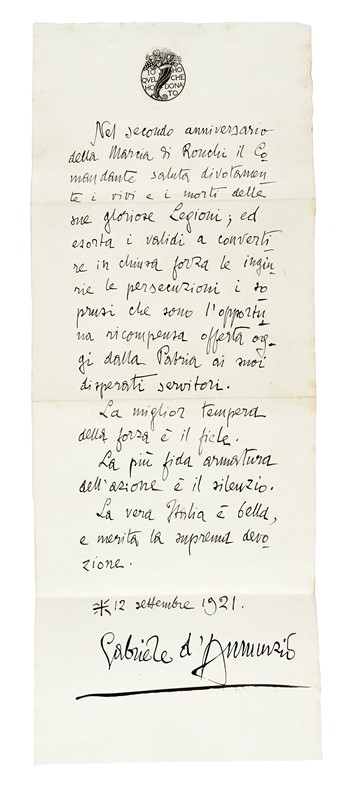 IO HO
QUEL CHE
HO DONA
TO
Nel secondo anniversario
della Marcia di Ronchi il Co
mandante saluta divotamen
te i vivi e i morti delle
sue gloriose Legioni; ed
esorta i validi a converti
re in chiusa forza le ingiu
rie le persecuzioni i so
prusi che sono l'opportu
na ricompensa offerta og-
gi dalla Patria ai suoi
disperati servitori.
La miglior tempera
della forza è il fiele.
La più fida armatura
dell'azione è il silenzio.
La vera Italia è bella,
e merita la suprema devo
zione.
12 settembre 1921.
Gabriele d'Annunzio